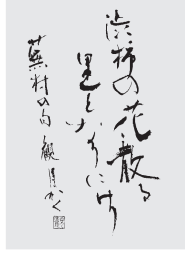 渋柿の花散る
里となりにけり
蕪村の句 かく